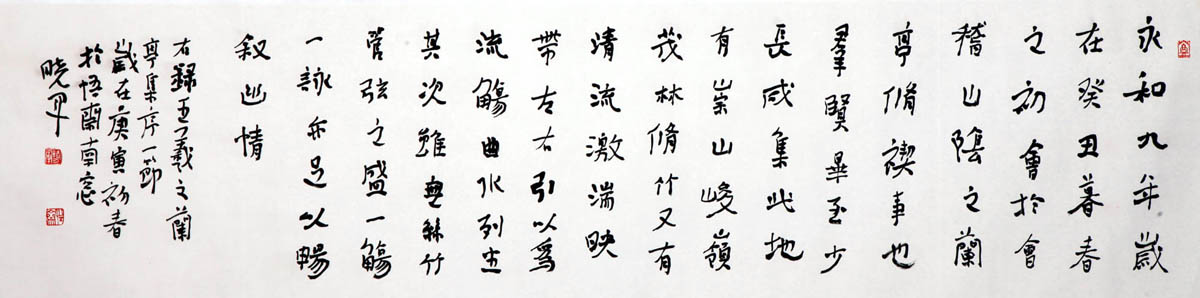 永和九年歲
在癸丑暮春
之初會於會
稽山陰之蘭
亭脩禊事也
羣賢畢至少
長咸集此地
有崇山峻嶺
茂林脩竹又有
清流激湍映
帶左右引以為
流觴曲水列坐
其次雖無絲竹
管弦之盛一觴
一詠亦足以暢
敘幽情
右錄王羲之蘭
亭集序一節
歲在庚寅初春
於悟蘭南窗
曉軍